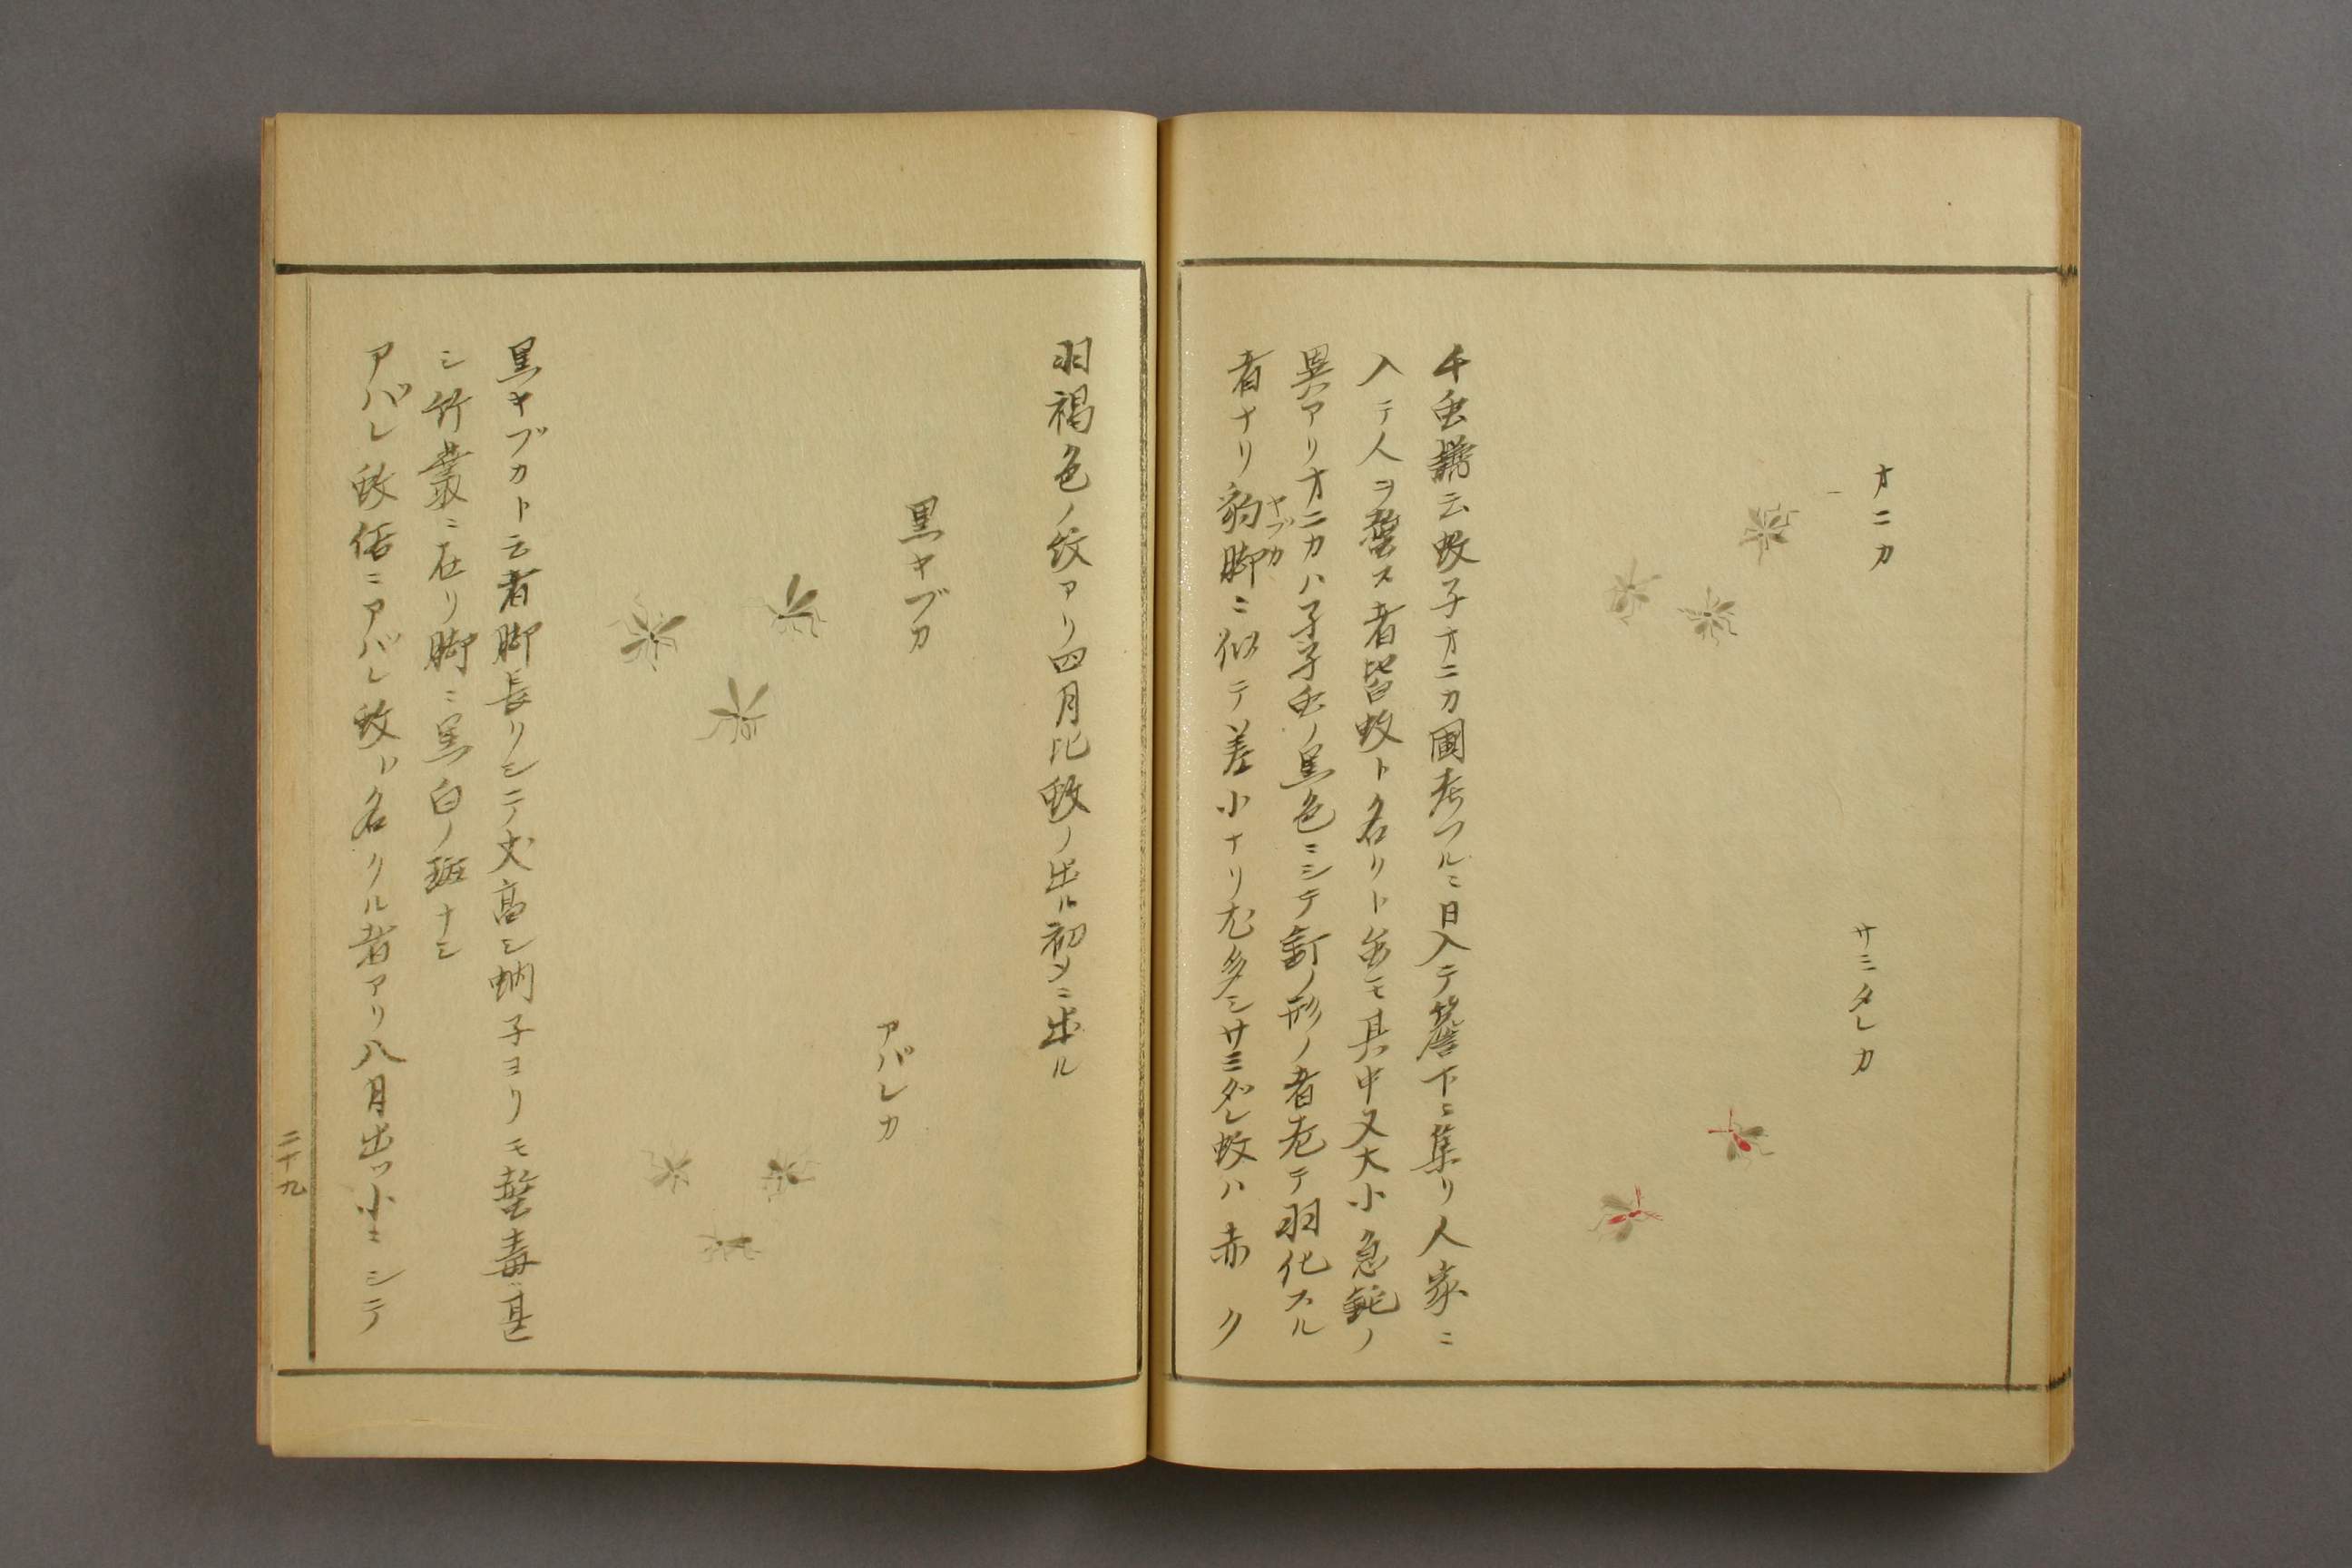 オニカ
サミタレカ
千虫譜云蚊子オニカ圃老フルニ日入テ簷下ニ集リ人家ニ
入テ人ヲ螫ス者皆蚊ト名リト虽モ其中又大小急鈍ノ
異アリオニカハ孑孑虫ノ黒色ニシテ釘ノ形ノ者老テ羽化スル
者ナリ豹脚ニ似テ差小ナリ尤多シサミダレ蚊ハ赤ク
ヤブカ
羽褐色ノ紋アリ四月比蚊ノ出ル初メニ出ル
黒ヤブカ
アバレカ
黒ヤブカト云者脚長リシテ丈高シ蚋子ヨリモ螫毒甚
シ竹叢ニ在リ脚ニ黒白ノ斑ナシ
アバレ蚊俗ニアバレ蚊ト名クル者アリ八月出ツ小ニシテ
二十九